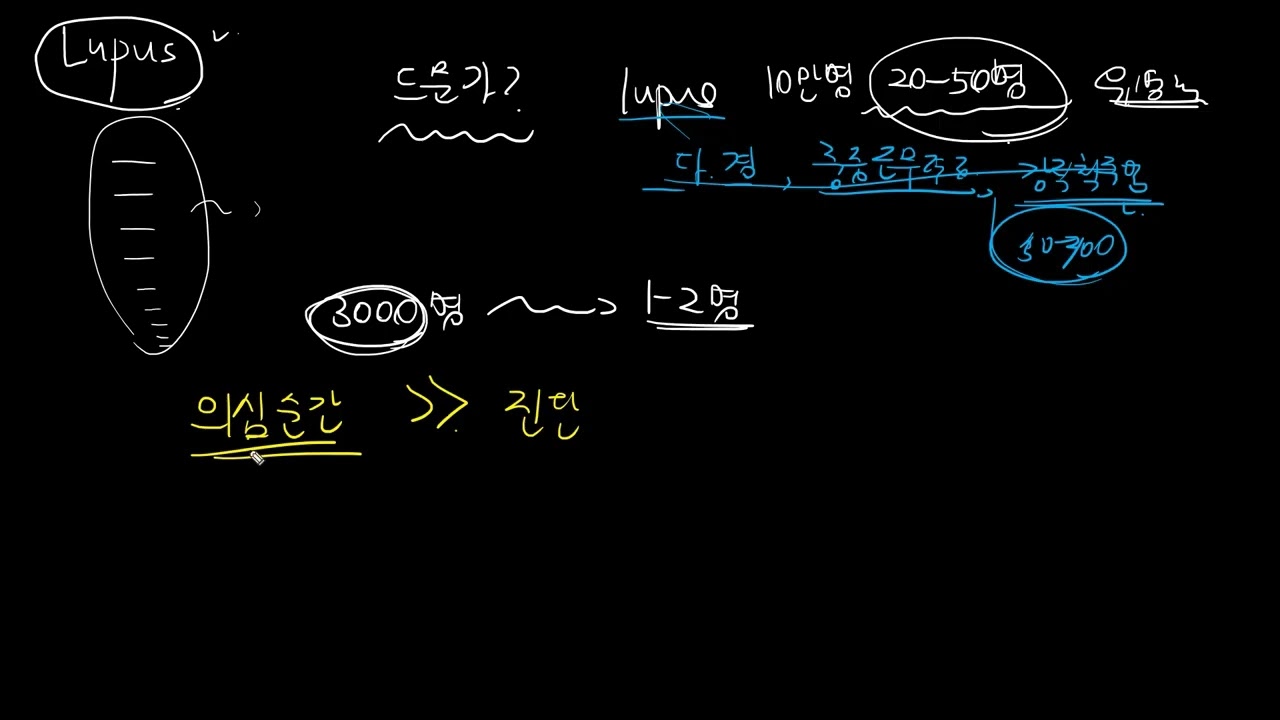 Lupus
드문가? lupus 10만명 20-50명 유병률
다.경, 중증근무력증
3000명 1-2명
의심순간 >> 진단